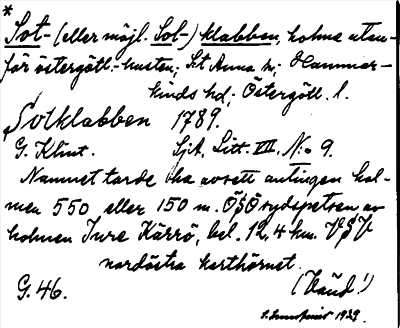 *
Sot- (eller möjl. Sol-) klabben, holme utan-
för östergötl.-kusten; S:t Anna sn; Hammar-
kinds hd; Östergötl. l.
Sotklabben 1789.
G. Klint. Sjk. Litt. VII. N:o 9.
Namnet torde ha avsett antingen hol-
men 550 eller 150 m. OSO sydspetsen av
holmen Inre Kärrö, bel. 12,4 km. VSV
nordöstra karthörnet.
G. 46. (Vänd!)
1929.